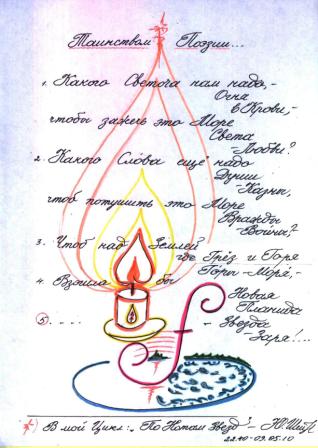 Таинством Поэзии...
1. Какого Светоча нам надо,-
Огня
в Крови,-
чтобы зажечь это Море
Света
-Любви?
2. Какого Слова ещё надо
Души
-Казны,
чтоб потушить это Море
Вражды
-Войны?
3. Чтоб над Землей
где Грёз и Горя
Горы-Моря,-
4. Взошла бы
Новая
Планида
- Звезда
-Заря!...
5. . . . .
*) В мой Цикл: "По Нотам Звезд" -
22.10-09.05.10